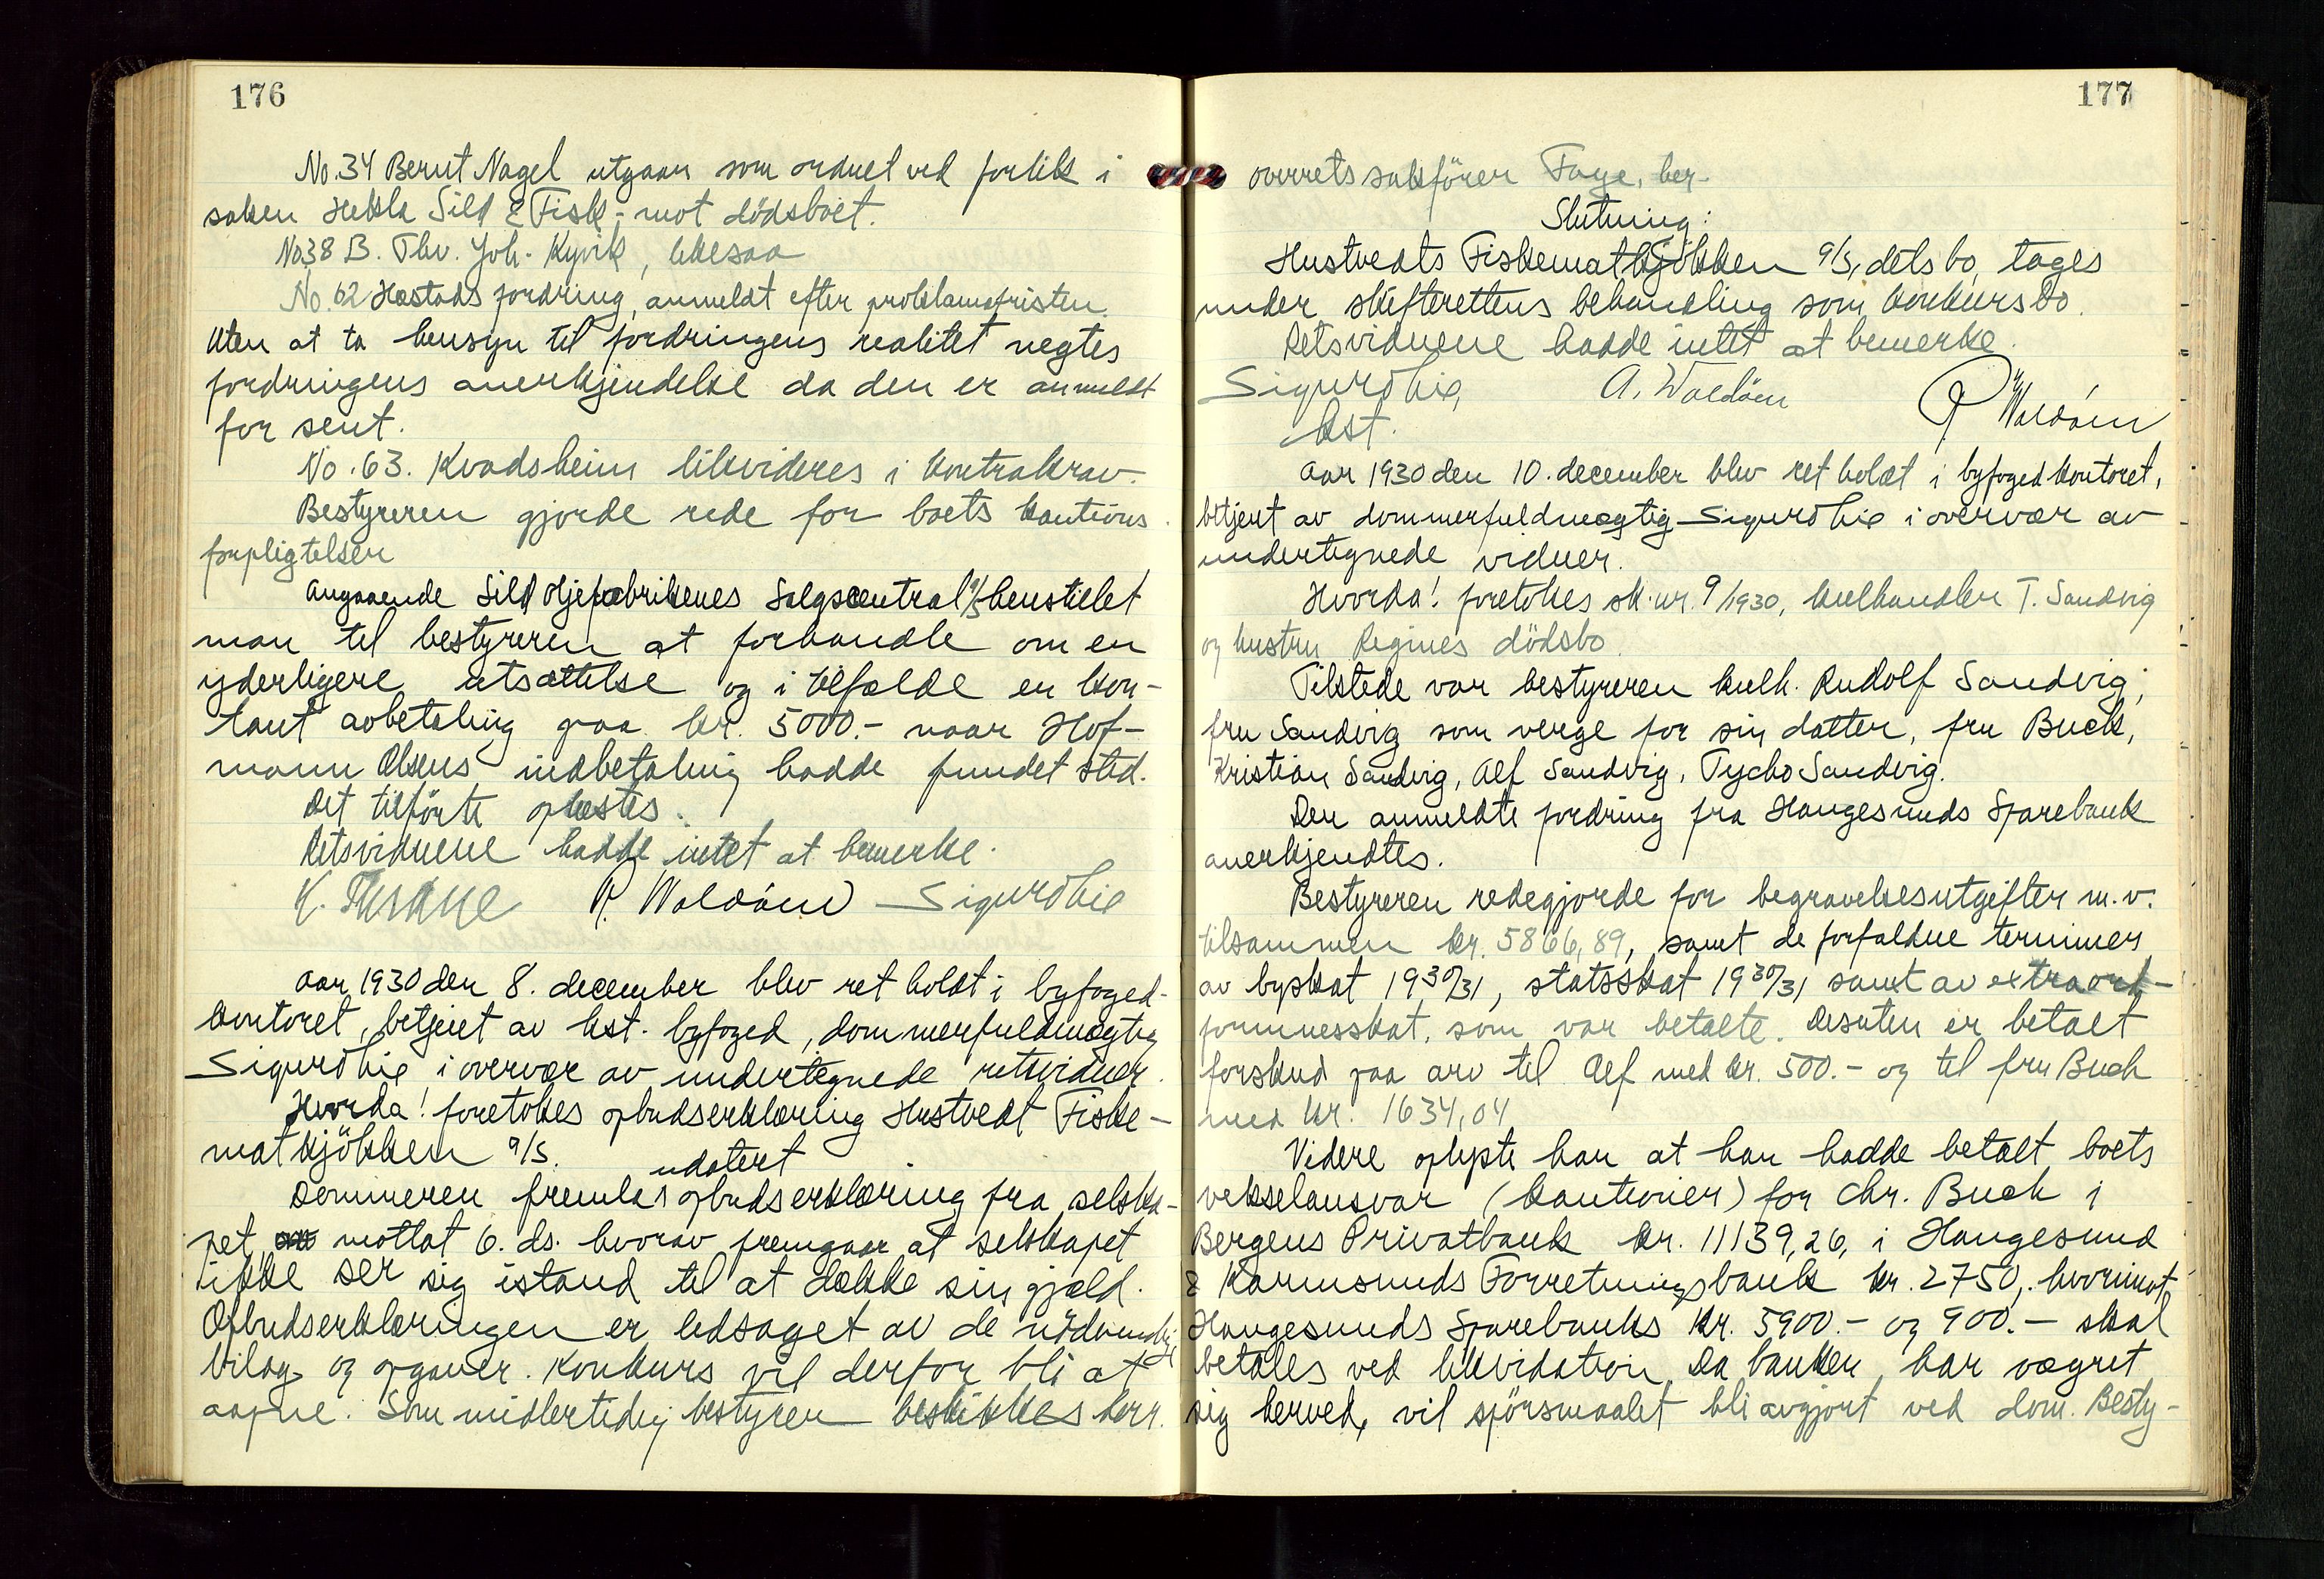 176
No. 34 Bernt Nagel utgaar som ordnet ved forlik i
saken Hekla Sild & Fisk - mot dödsboet.
No 38 B. Thv. Joh. Kyvik, likesaa
No. 62 Hæstads fordring, anmeldt efter proklamafristen.
Uten at ta hensyn til fordringens realitet negtes
fordringens anerkjendelse da den er anmeldt
for sent.
No. 63. Kvadsheim likvideres i kontrakrav.
Bestyreren gjorde rede for boets kautions
forpligtelser
Angaaende Sildoljefabrikenes Salgscentral A/S henstillet
man til bestyreren at forhandle om en
yderligere utsættelse og i tilfælde en kon-
tant avbetaling paa kr. 5000.- naar Hof-
mann Olsens indbetaling hadde fundet sted.
Det tilförte oplæstes.
Retsvidnene hadde intet at bemerke.
K. Thrane P. Waldám Sigurd Lie
Aar 1930 den 8. december blev ret holdt i byfoged-
kontoret, betjent av kst. byfoged, dommerfuldmægtig
Sigurd Lie i overvær av undertegnede retsvidner.
Hvorda! foretokes opbudserklæring Hustvedt Fiske-
matkjökken A/S.
udatert
Dommeren fremla opbudserklæring fra selska-
pet, mottat 6. ds. hvorav fremgaar at selskapet
ikke ser sig istand til at dække sin gjæld.
Opbudserklæringen er ledsaget av de nödvendige
bilag og opgaver. Konkurs vil derfor bli at
aapne. Som midlertidig bestyrer beskikkes herr.
177
overretssakförer Faye, her.
Slutning:
Hustvedts Fiskematkjökken A/S, dets bo, tages
under skifterettens behandling som konkursbo.
Retsvidnene hadde intet at bemerke.
Sigurd Lie, A. Waldám P. Waldám
kst.
Aar 1930 den 10. december blev ret holdt i byfogedkontoret,
betjent av dommerfuldmægtig Sigurd Lie i overvær av
undertegnede vidner.
Hvorda! foretokes sk. nr. 9/1930, kulhandler T. Sandvig
og hustru Regines dödsbo.
Tilstede var bestyreren kulh. Rudolf Sandvig,
fru Sandvig som verge for sin datter, fru Buch,
Kristian Sandvig, Alf Sandvig, Tycho Sandvig.
Den anmeldte fordring fra Haugesunds Sparebank
anerkjendtes.
Bestyreren redegjorde for begravelsesutgifter m.v.
tilsammen kr. 5866,89, samt de forfaldne terminer
av byskat 1930/31, statsskat 1930/31 samt av extraord-
formuesskat, som var betalte. Desuten er betalt
forskud paa arv til Alf med kr. 500.- og til fru Buch
med kr. 1634,04
Videre oplyste han at han hadde betalt boets
vekselansvar (kautioner) for Chr. Buch i
Bergens Privatbank kr. 11139,26, i Haugesund
& Karmsunds Forretningsbank kr. 2750,. hvorimot
Haugesunds Sparebanks kr. 5900.- og 900.- skal
betales ved likvidation. Da banken har vægret
sig herved, vil spörsmaalet bli avgjort ved dom. Besty-